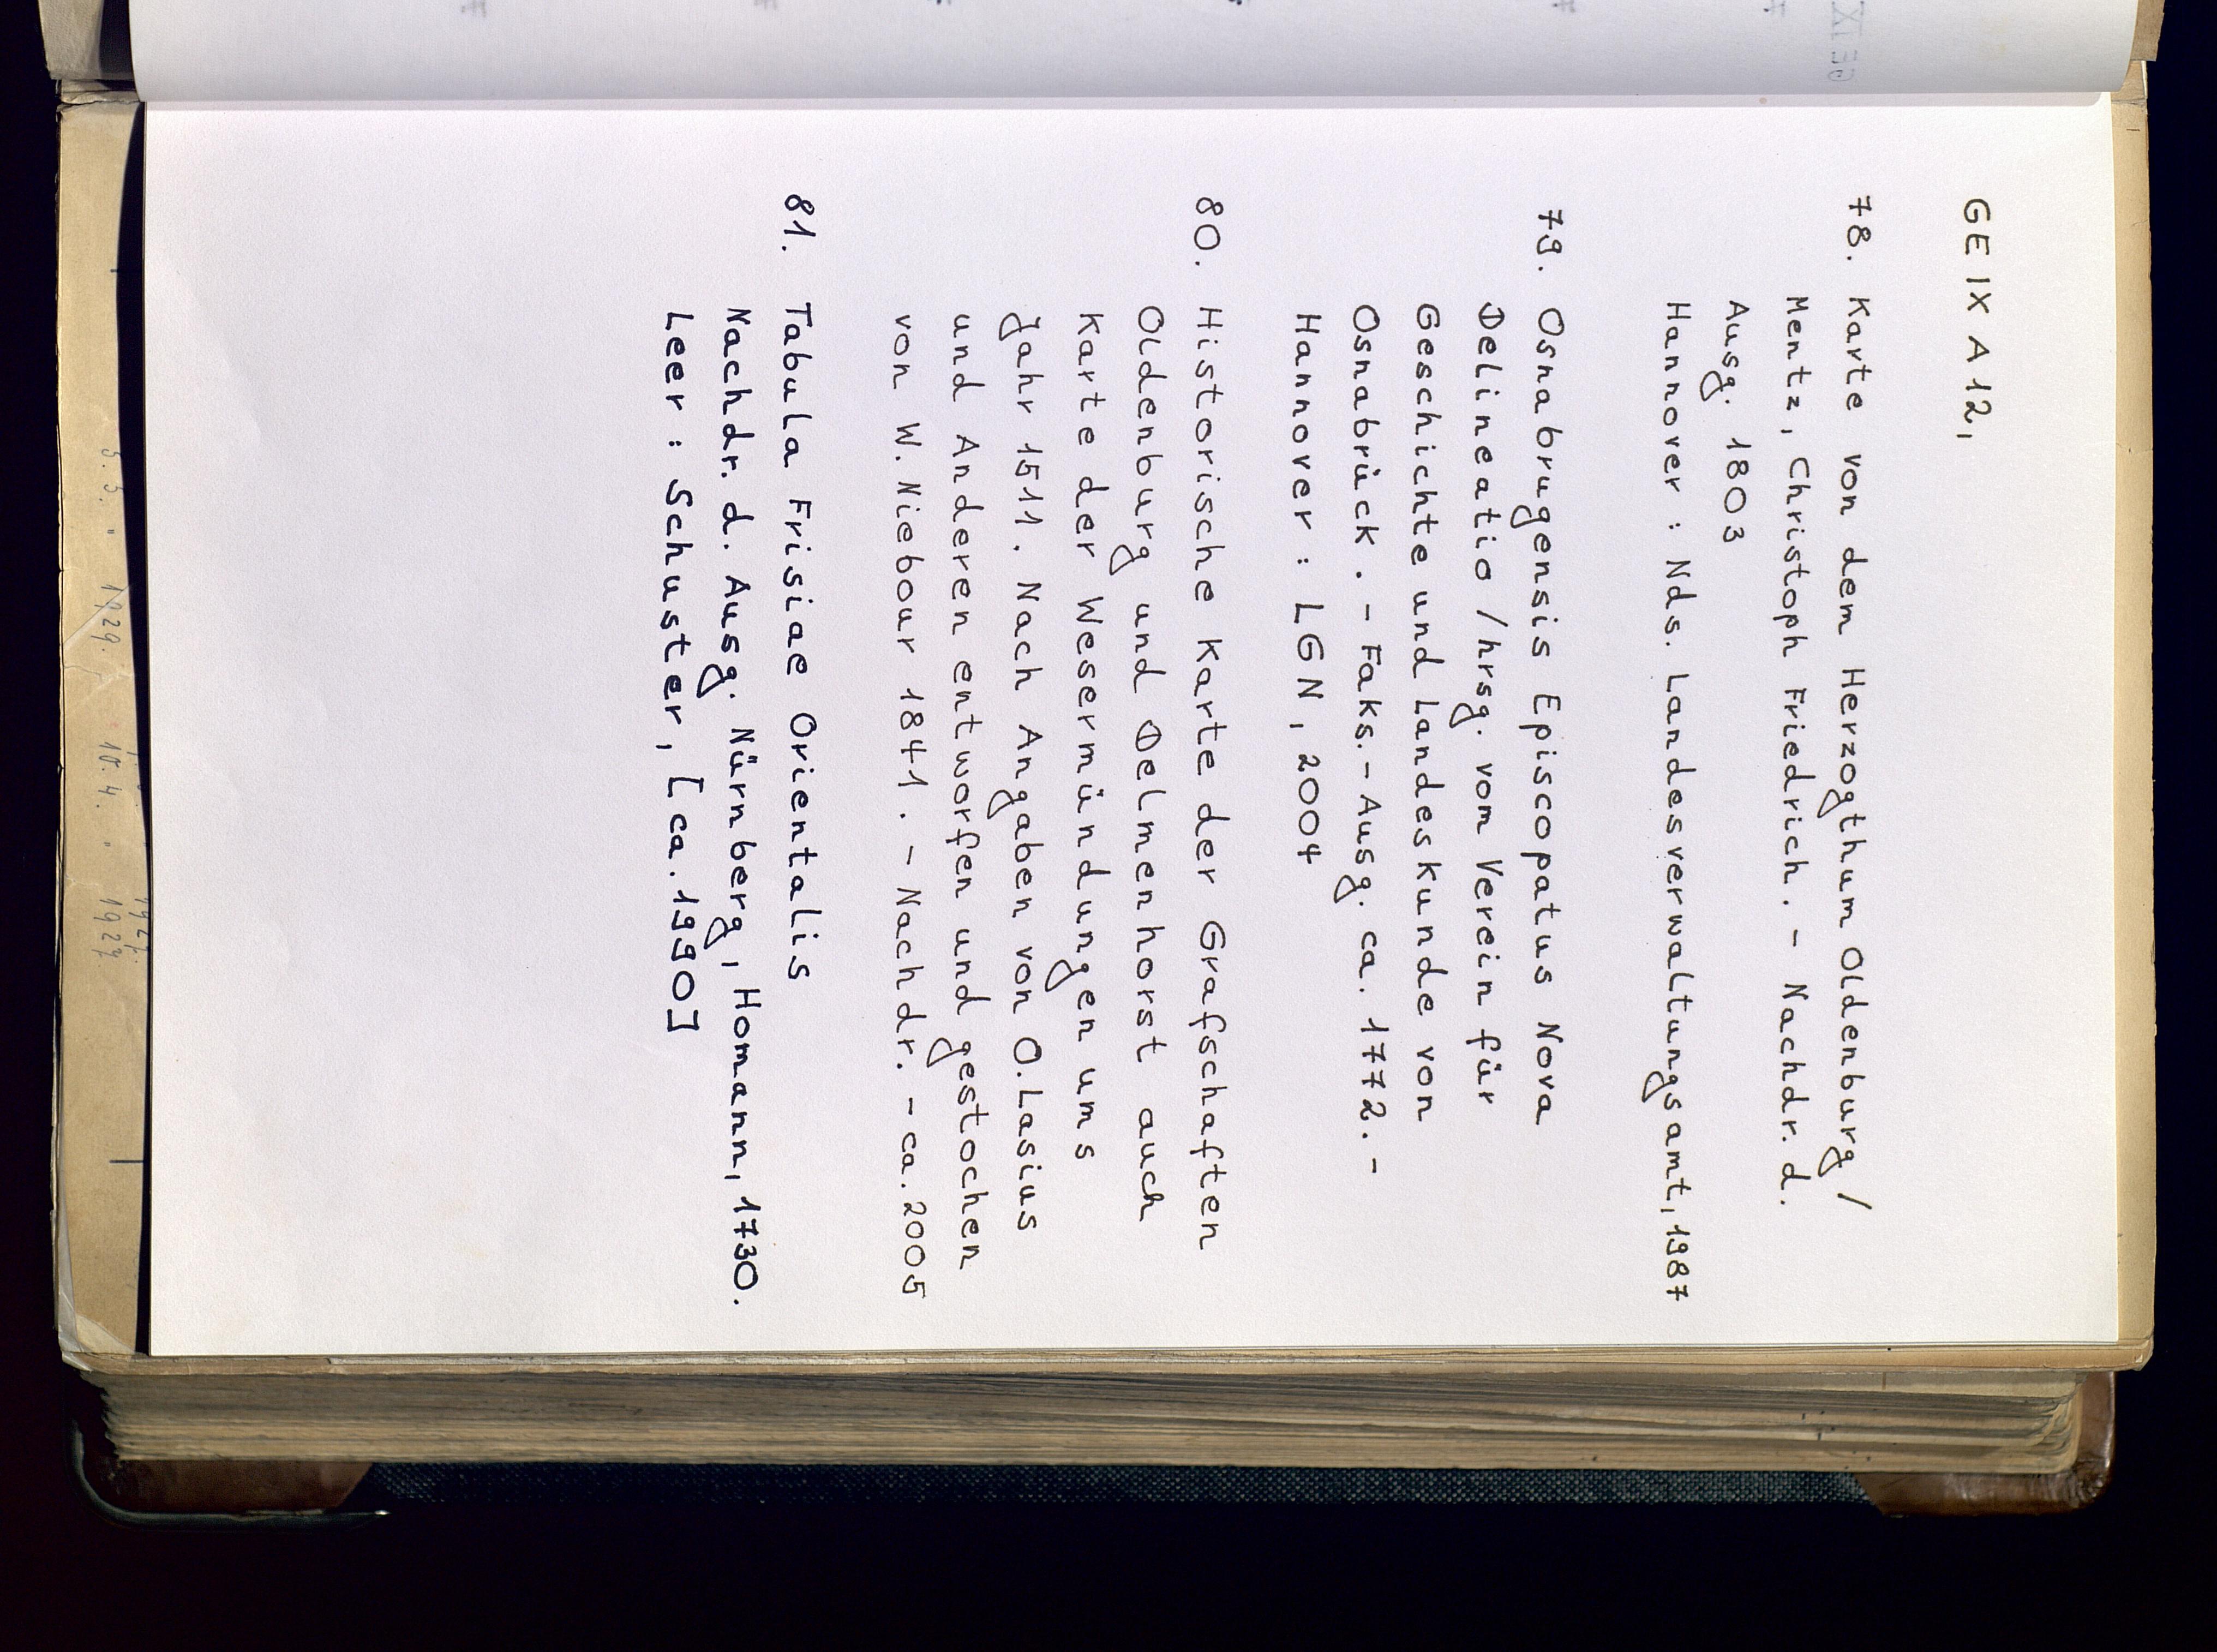 GE IX A 12,
78. Karte von dem Herzogthum Oldenburg /
Mentz, Christoph Friedrich. - Nachdr. d.
Ausg. 1803
Hannover : Nds. Landesverwaltungsamt, 1987
79. Osnabrugensis Episcopatus Nova
Delineatio / hrsg. vom Verein für
Geschichte und Landeskunde von
Osnabrück. - Faks.-Ausg. ca. 1772. -
Hannover : LGN, 2004
80. Historische Karte der Grafschaften
Oldenburg und Delmenhorst auch
Karte der Wesermündungen ums
Jahr 1511. Nach Angaben von O. Lasius
und Anderen entworfen und gestochen
von W. Niebour 1841. - Nachdr. - ca. 2005
81. Tabula Frisiae Orientalis
Nachdr. d. Ausg. Nürnberg, Homann, 1730.
Leer : Schuster, [ca. 1990]